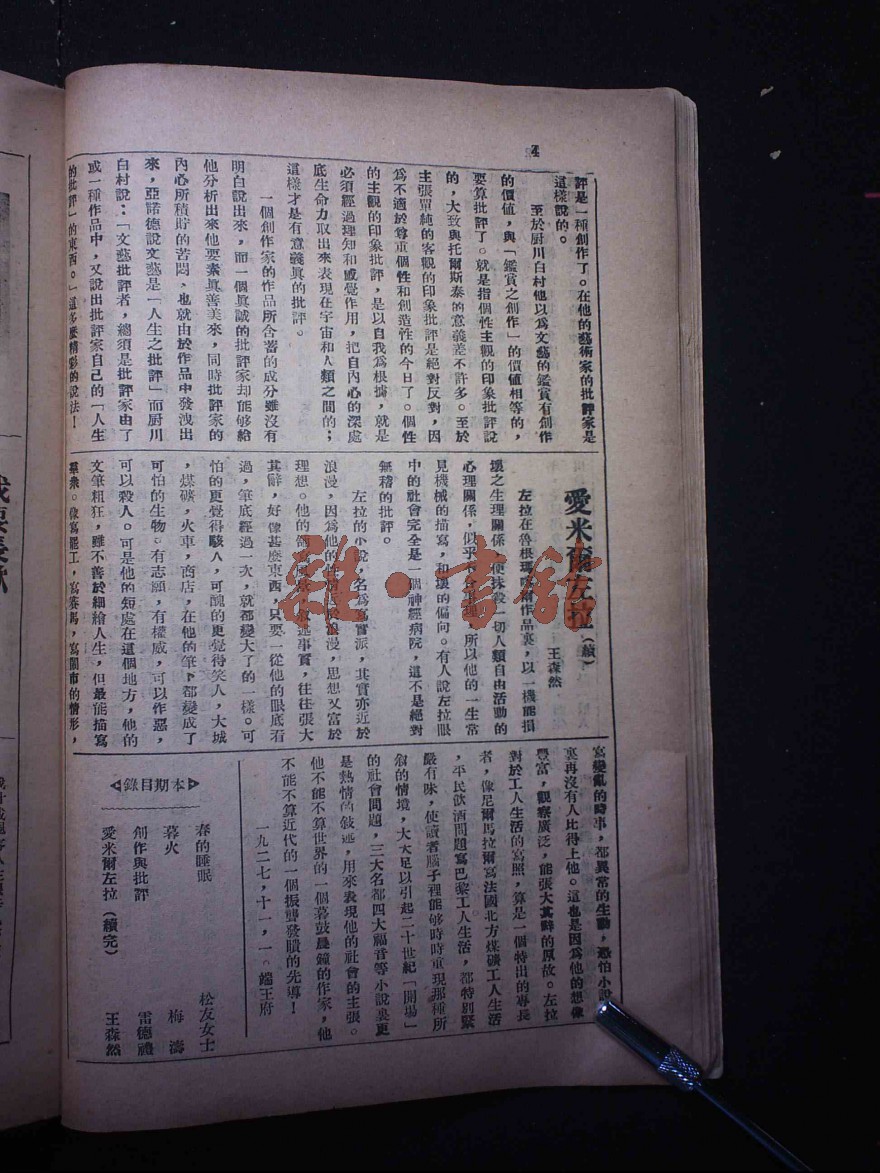 4
評是一種創作了。在他的藝術家的批評家是
這樣說的。
至於厨川白村他以爲文藝的鑑賞有創作
的價値，與「鑑賞之創作」的價値相等的，
要算批評了。就是指個性主觀的印象批評說
的，大致與托爾斯泰的意義差不許多。至於
主張單純的客觀的印象批評是絕對反對，因
爲不適於尊重個性和創造性的今日了。個性
的主觀的印象批評，是以自我爲根據，就是
必須經過理知和感覺作用，把自內心的深處
底生命力取出來表現在宇宙和人類之間的；
這樣才是有意義眞的批評。
一個創作家的作品所含蓄的成分雖沒有
明白說出來，而一個眞誠的批評家却能够給
他分析出來他要素眞善美來，同時批評家的
內心所積貯的苦悶，也就由於作品中發洩出
來，亞諾德說文藝是「人生之批評」而厨川
白村說：「文藝批評者，總須是批評家由了
或一種作品中，又說出批評家自己的「人生
的批評」的東西。」這多麽精彩的說法！
愛米爾左拉（續）
王森然
左拉在魯根瑪
爾作品裏，以一機能損
壞之生理關係，便抹殺一切人類自由活動的
心理關係，似乎不
所以他的一生常
見機械的描寫，和壞的偏向。有人說左拉眼
中的社會完全是一個神經病院，這不是絕對
無稽的批評。
左拉的小說，名爲寫實派，其實亦近於
浪漫，因爲他的性
浪漫，思想又富於
理想。他的
述事實，往往張大
其辭，好像甚麽東西，只要一從他的眼底看
過，筆底經過一次，就都變大了的一樣。可
怕的更覺得駭人，可醜的更覺得笑人，大城
，煤礦，火車，商店，在他的筆下都變成了
可怕的生物。有志願，有權威，可以作惡，
可以殺人。可是他的短處在這個地方，他的
文筆粗狂，雖不善於細繪人生，但最能描寫
羣衆。像寫罷工，寫賽馬，寫鬧市的情形，
寫變亂的時事，都異常的生動，恐怕小說
裏再沒有人比得上他。這也是因爲他的想像
豐富，觀察廣泛，能張大其辭的原故。左拉
對於工人生活的寫照，算是一個特出的專長
者，像尼爾馬拉爾寫法國北方煤礦工人生活
，平民飲酒問題寫巴黎工人生活，都特別緊
嚴有味，使讀者腦子裡能够時時重現那種所
叙的情境，大大足以引起二十世紀「開場」
的社會問題，三大名都四大福音等小說裏更
是熱情的叙述，用來表現他的社會的主張。
他不能不算世界的一個暮鼓晨鐘的作家，他
不能不算近代的一個振聾發聵的先導！
一九二七，十一，一。端王府
本期目錄
春的睡眠 松友女士
暮火 梅濤
創作與批評 雷德禮
愛米爾左拉（續完） 王森然
雜·書館